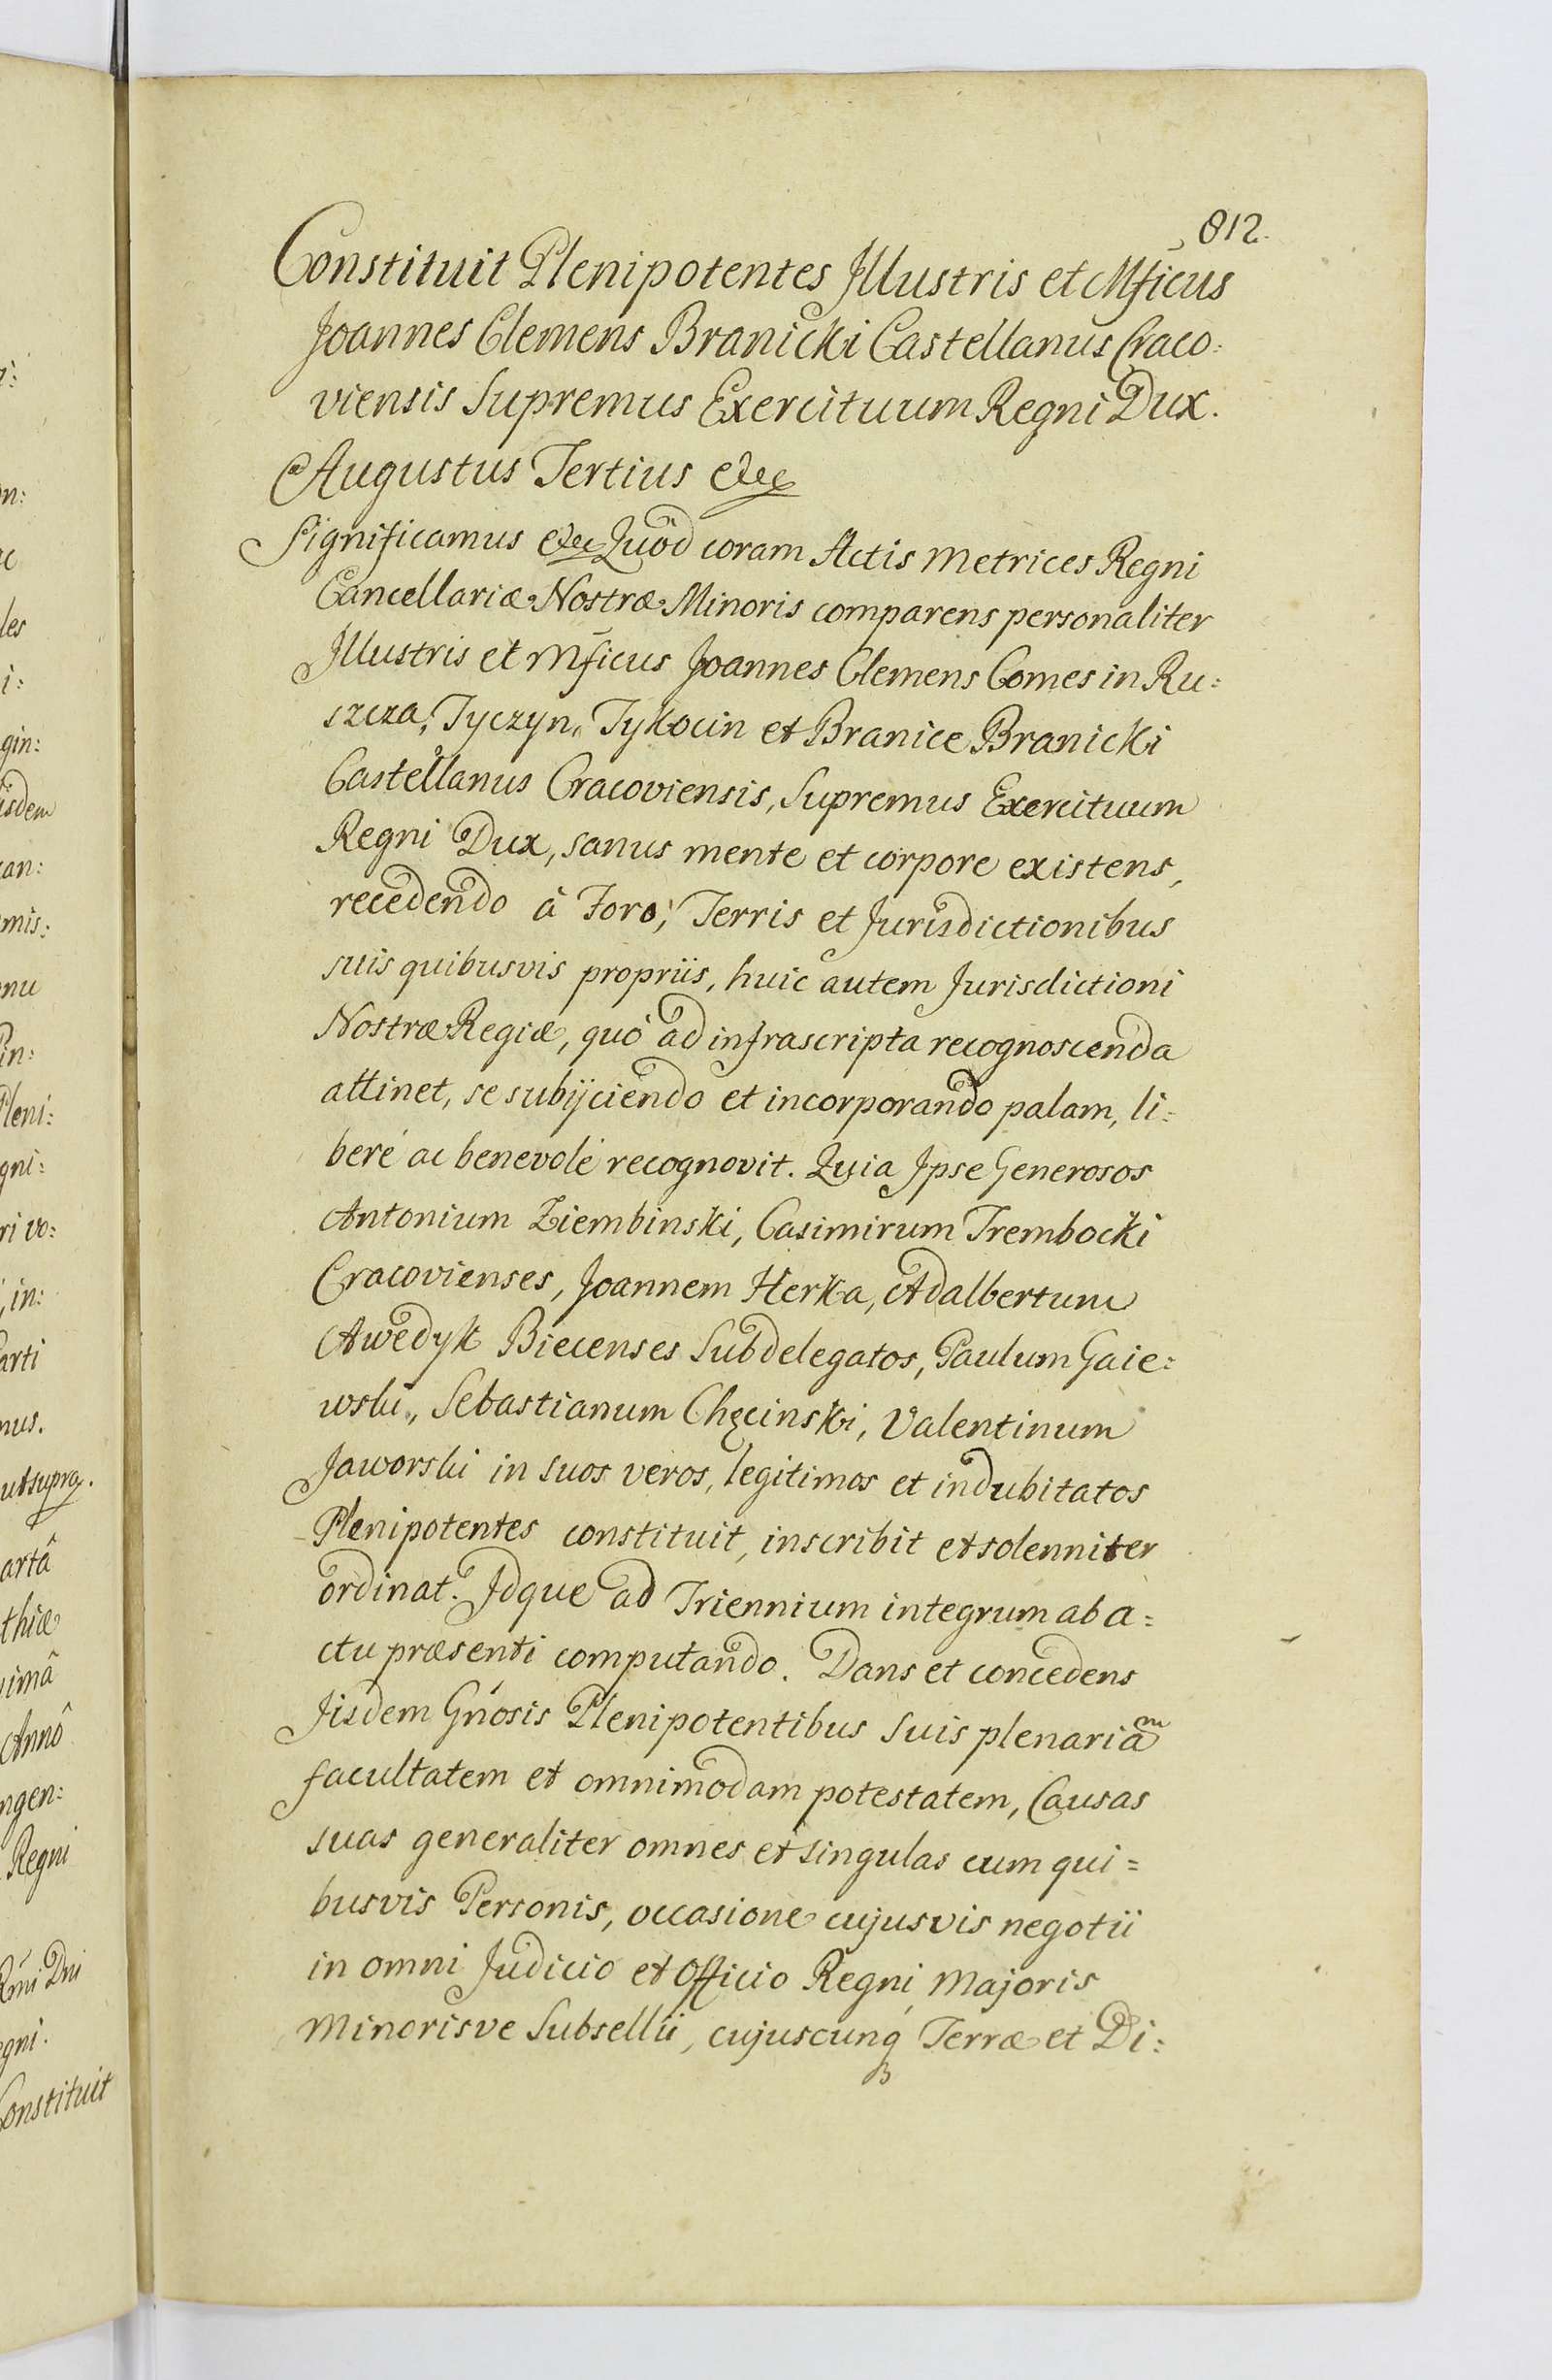 812.
Constituit Plenipotentes Jllustris et Mficus
Joannes Clemens Branicki Castellanus Craco:
viensis Supremus Exercituum Regni Dux.
Augustus Tertius etc
Significamus etc Quod coram Actis Metrices Regni
Cancellariæ Nostræ Minoris comparens personaliter
Jllustris et Mficus Joannes Clemens Comes in Ru:
szcza, Tyczyn, Tykocin et Branice Branicki
Castellanus Cracoviensis, Supremus Exercituum
Regni Dux, sanus mente et corpore existens,
recedendo à Foro, Terris et Jurisdictionibus
suis quibusvis propriis, huic autem Jurisdictioni
Nostræ Regiæ, quò ad infrascripta recognoscenda
attinet, se subijciendo et incorporando palam, li:
berè ac benevolè recognovit. Quia Jpse Generosos
Antonium Ziembinski, Casimirum Trembocki
Cracovienses, Joannem Herka, Adalbertum
Awedyk Biecenses Subdelegatos, Paulum Gaie:
wski, Sebastianum Chęcinski, Valentinum
Jaworski in suos veros, legitimos et indubitatos
Plenipotentes constituit, inscribit et solenniter
ordinat. Jdque ad Triennium integrum ab a:
ctu præsenti computando. Dans et concedens
Jisdem Gnosis Plenipotentibus suis plenariam
facultatem et omnimodam potestatem, Causas
suas generaliter omnes et singulas cum qui=
busvis Personis, occasione cujusvis negotii
in omni Judicio et Officio Regni, Majoris
Minorisve Subsellii, cujuscunq Terræ et Di:
isdem
mis:
Pleni:
gni:
ri vo:
in:
arti
nus.
ut supra.
artâ
thiæ
imâ
Annô
ngen:
Regni
Rmi Dni
egni.
Constituit